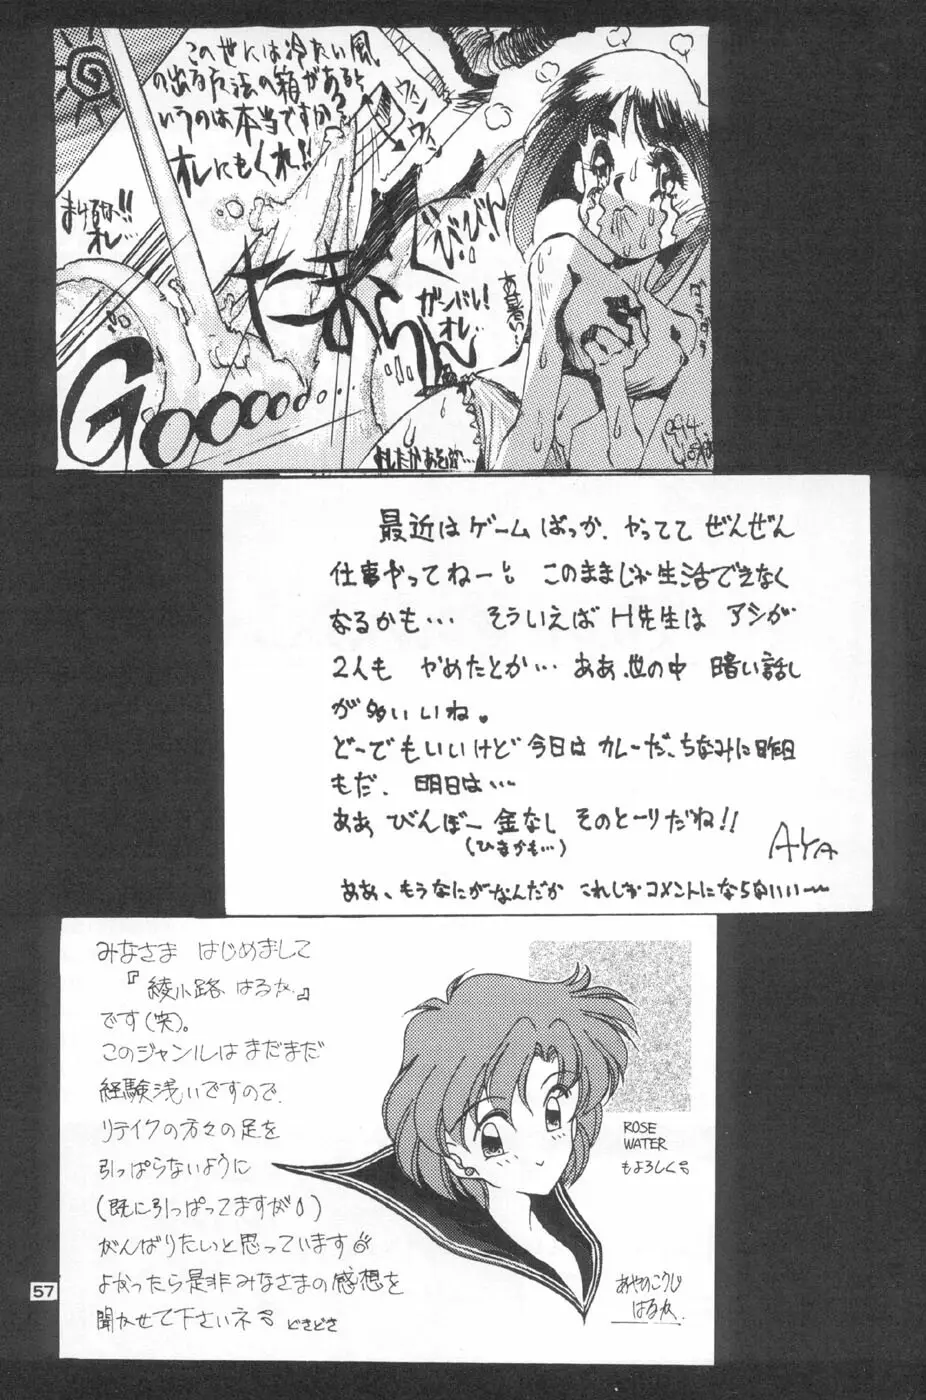 この世には冷たい風
の出る方法の箱があると
いうのは本当ですか?
オレにもくれ!!
ウィン
ウィン
まけるな!!
オレ…
びびびん
ガンバレ!
オレ…
あ暑い…
たまらん
Goooooo…
最近はゲームばっか、やってて ぜんぜん
仕事やってねーし このままじゃ生活できなく
なるかも… そういえば H先生は アシが
2人も やめたとか… ああ、世の中 暗い話し
が多いいね。
どーでもいいけど今日は カレーだ、ちなみに昨日
もだ、 明日は…
ああ びんぼー金なし そのとーりだね!!
(ひまかも…)
AYA
ああ、もうなにがなんだか これじゃコメントにならないいー
みなさま はじめまして
『綾小路 はるな』
です(笑)。
このジャンルはまだまだ
経験浅いですので、
リテイクの方々の足を
引っぱらないように
(既に引っぱってますが)
がんばりたいと思っています
よかったら是非みなさまの感想を
聞かせて下さいネ どきどき
ROSE
WATER
もよろしく
あやのこうじ
はるな.
57